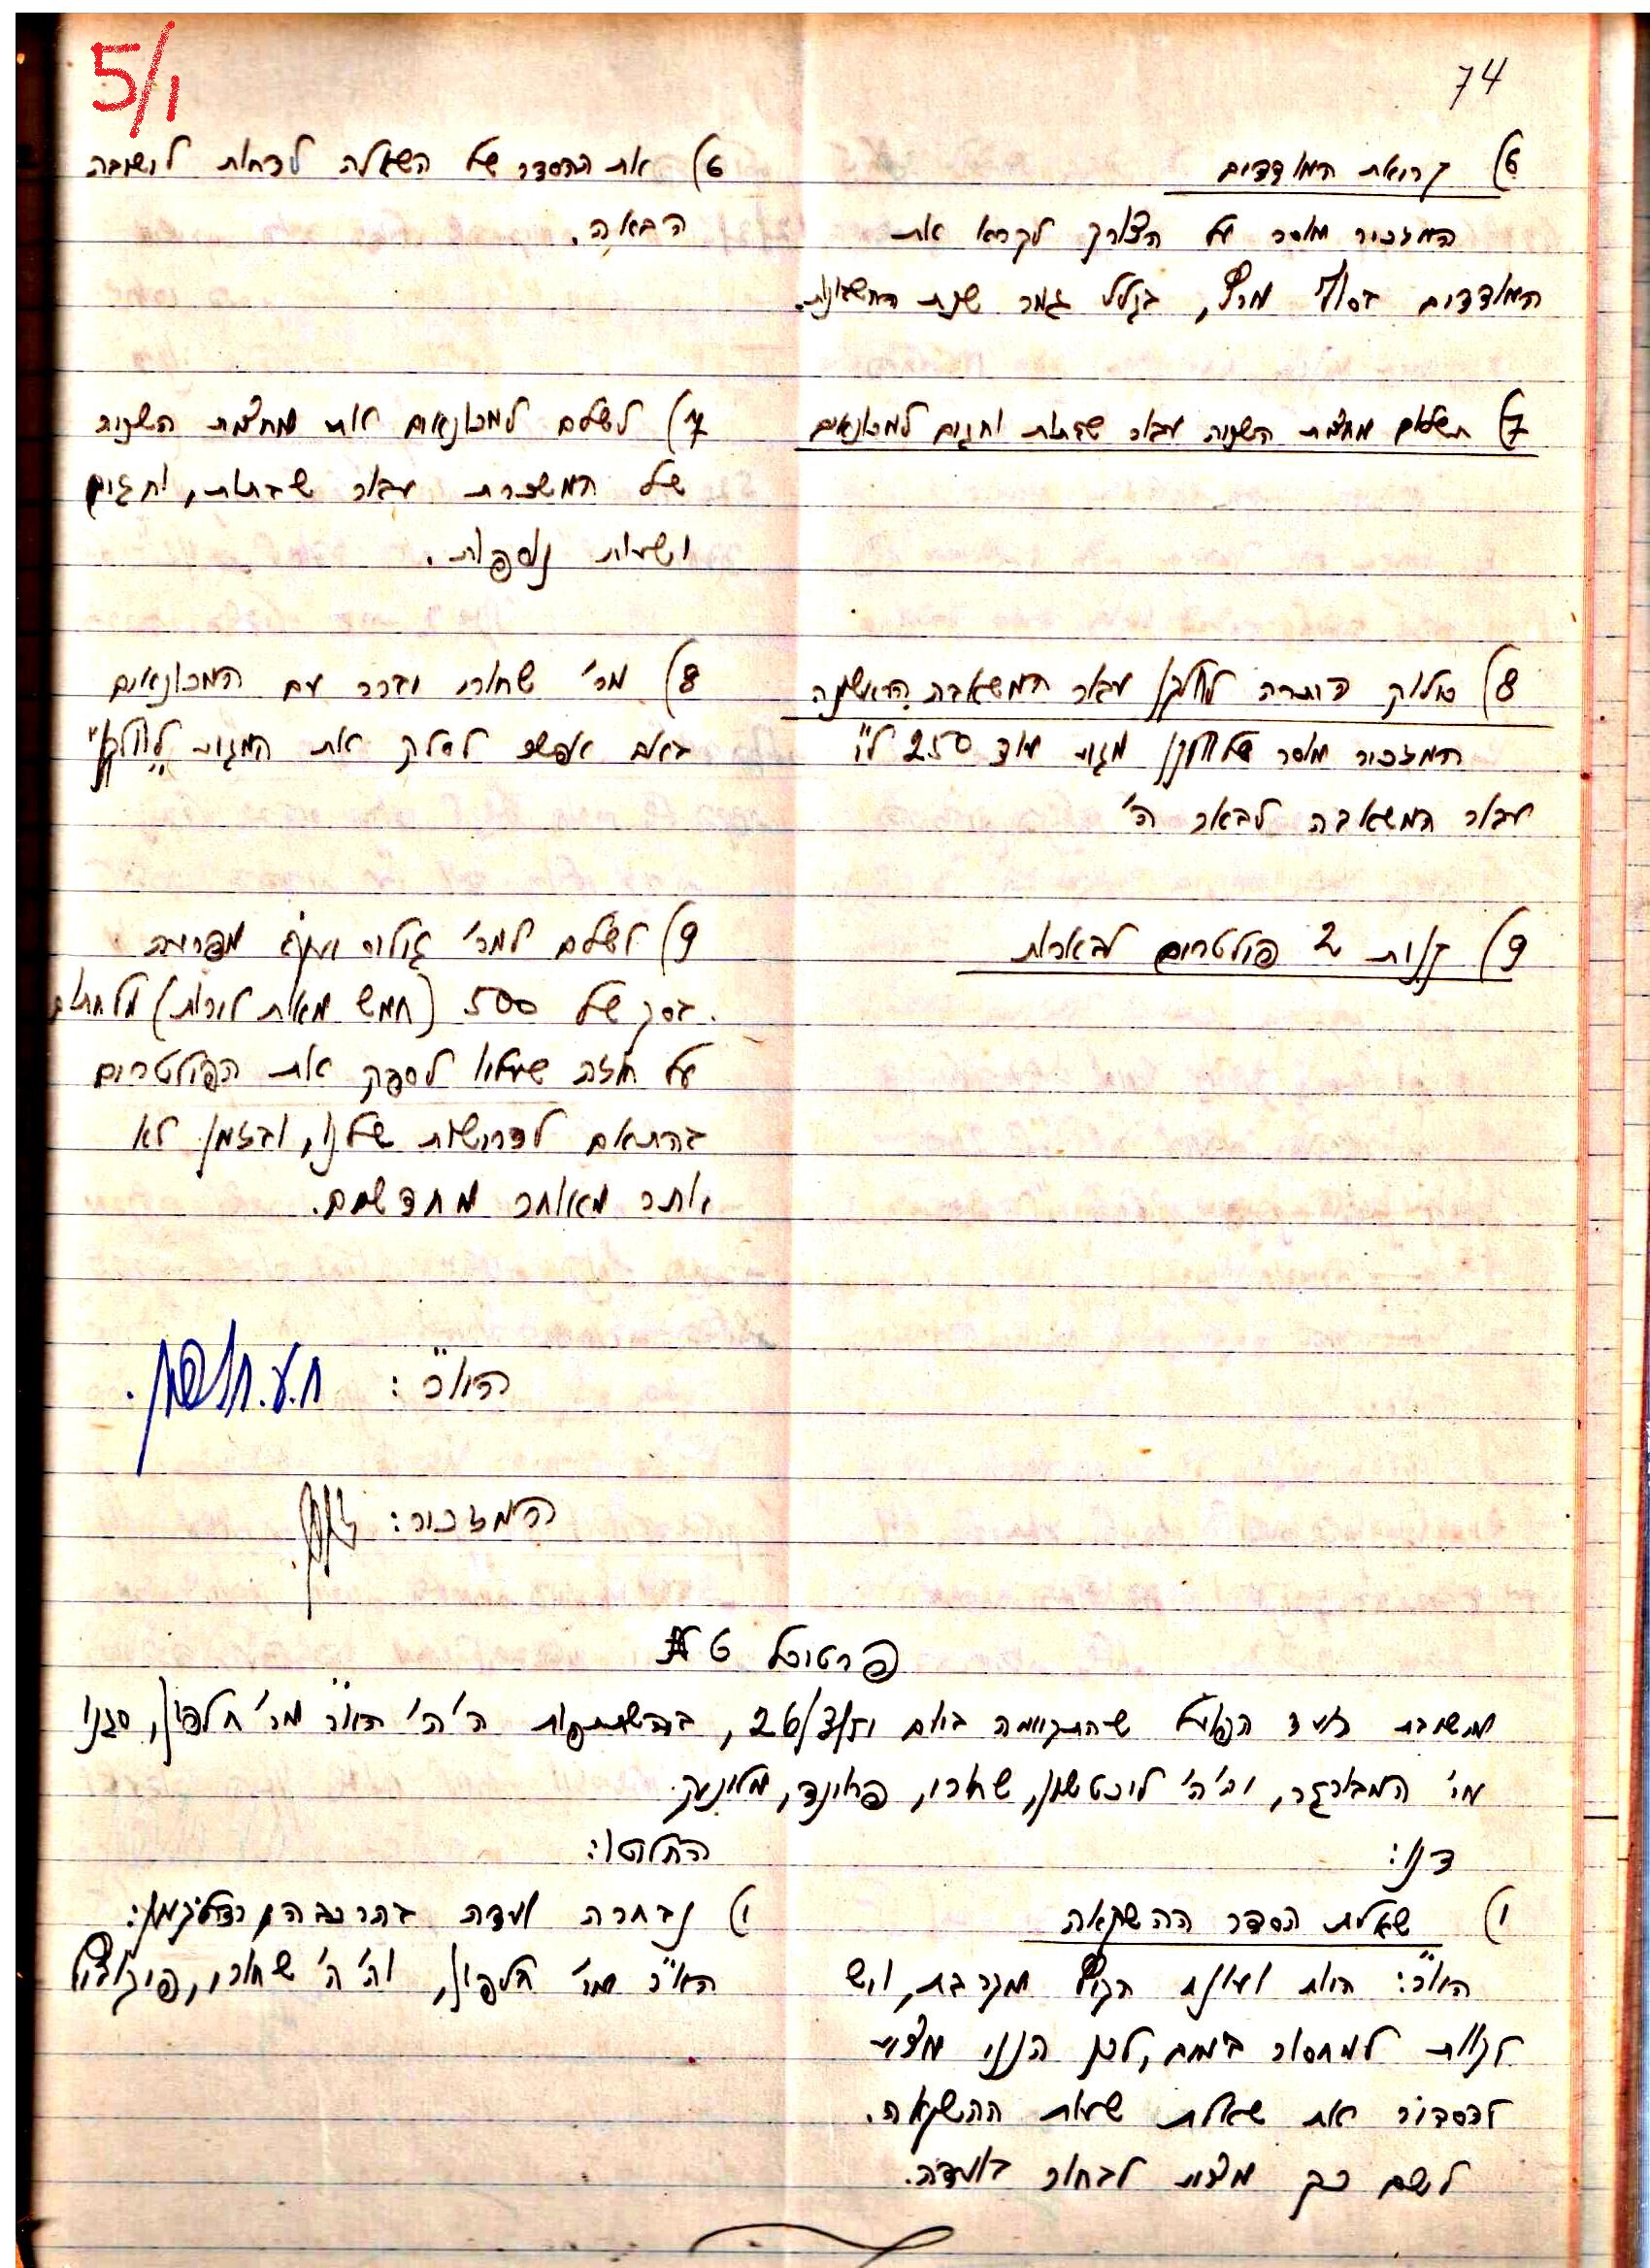 5/1
74
6) קריאת המודדים
המזכיר מוסר על הצורך לקרא את
המודדים בסוף מרץ, בגלל גמר שנת החשבונות.
6) את ההסדר של השאלה לדחות לישיבה
הבאה.
7) תשלום מחצית השניה עבור שבתות וחגים למכונאים
7) לשלם למכונאים את מחצית השניה
של המשכורת עבור שבתות, וחגים
ושעות נוספות.
8) סלוק היתרה עבור המשאבה הראשונה
המזכיר מוסר מגיע עוד 250 ל"י
עבור המשאבה לבאר ה'
8) מר' שחורי ידבר עם המכונאים
באם אפשר לסלק את המגיע
9) קנית 2 פילטרים לבארות
9) לשלם למר' מפרעה
בסך של 500 (חמש מאות לירות)
על חוזה שעליו לספק את הפילטרים
בהתאם לדרישות שלנו, ובזמן לא
יותר מאוחר מחדשים.
היו"ר: ח.ע. חלפון.
המזכיר:
פרטיכל 6
מישיבת ועד הפועל שהתקיימה ביום 26/3/51, בהשתתפות ה'ה' היו"ר מר' חלפון, סגנו
מר' המבורגר, וה'ה' ליכטשטין, שחורי, פרוינד,
דנו:
החליטו:
1) שאלת הסדר ההשקאה
היו"ר: היות ועונת הקיץ מתקרבת, ויש
לקוות למחסור במים, לכן הנני מציע
להסביר את שאלת שעות ההשקאה.
לשם כך מציע לבחור בועדה.
1) נבחרה ועדה בהרכבה דלקמן:
היו"ר מר' חלפון, וה'ה' שחורי,